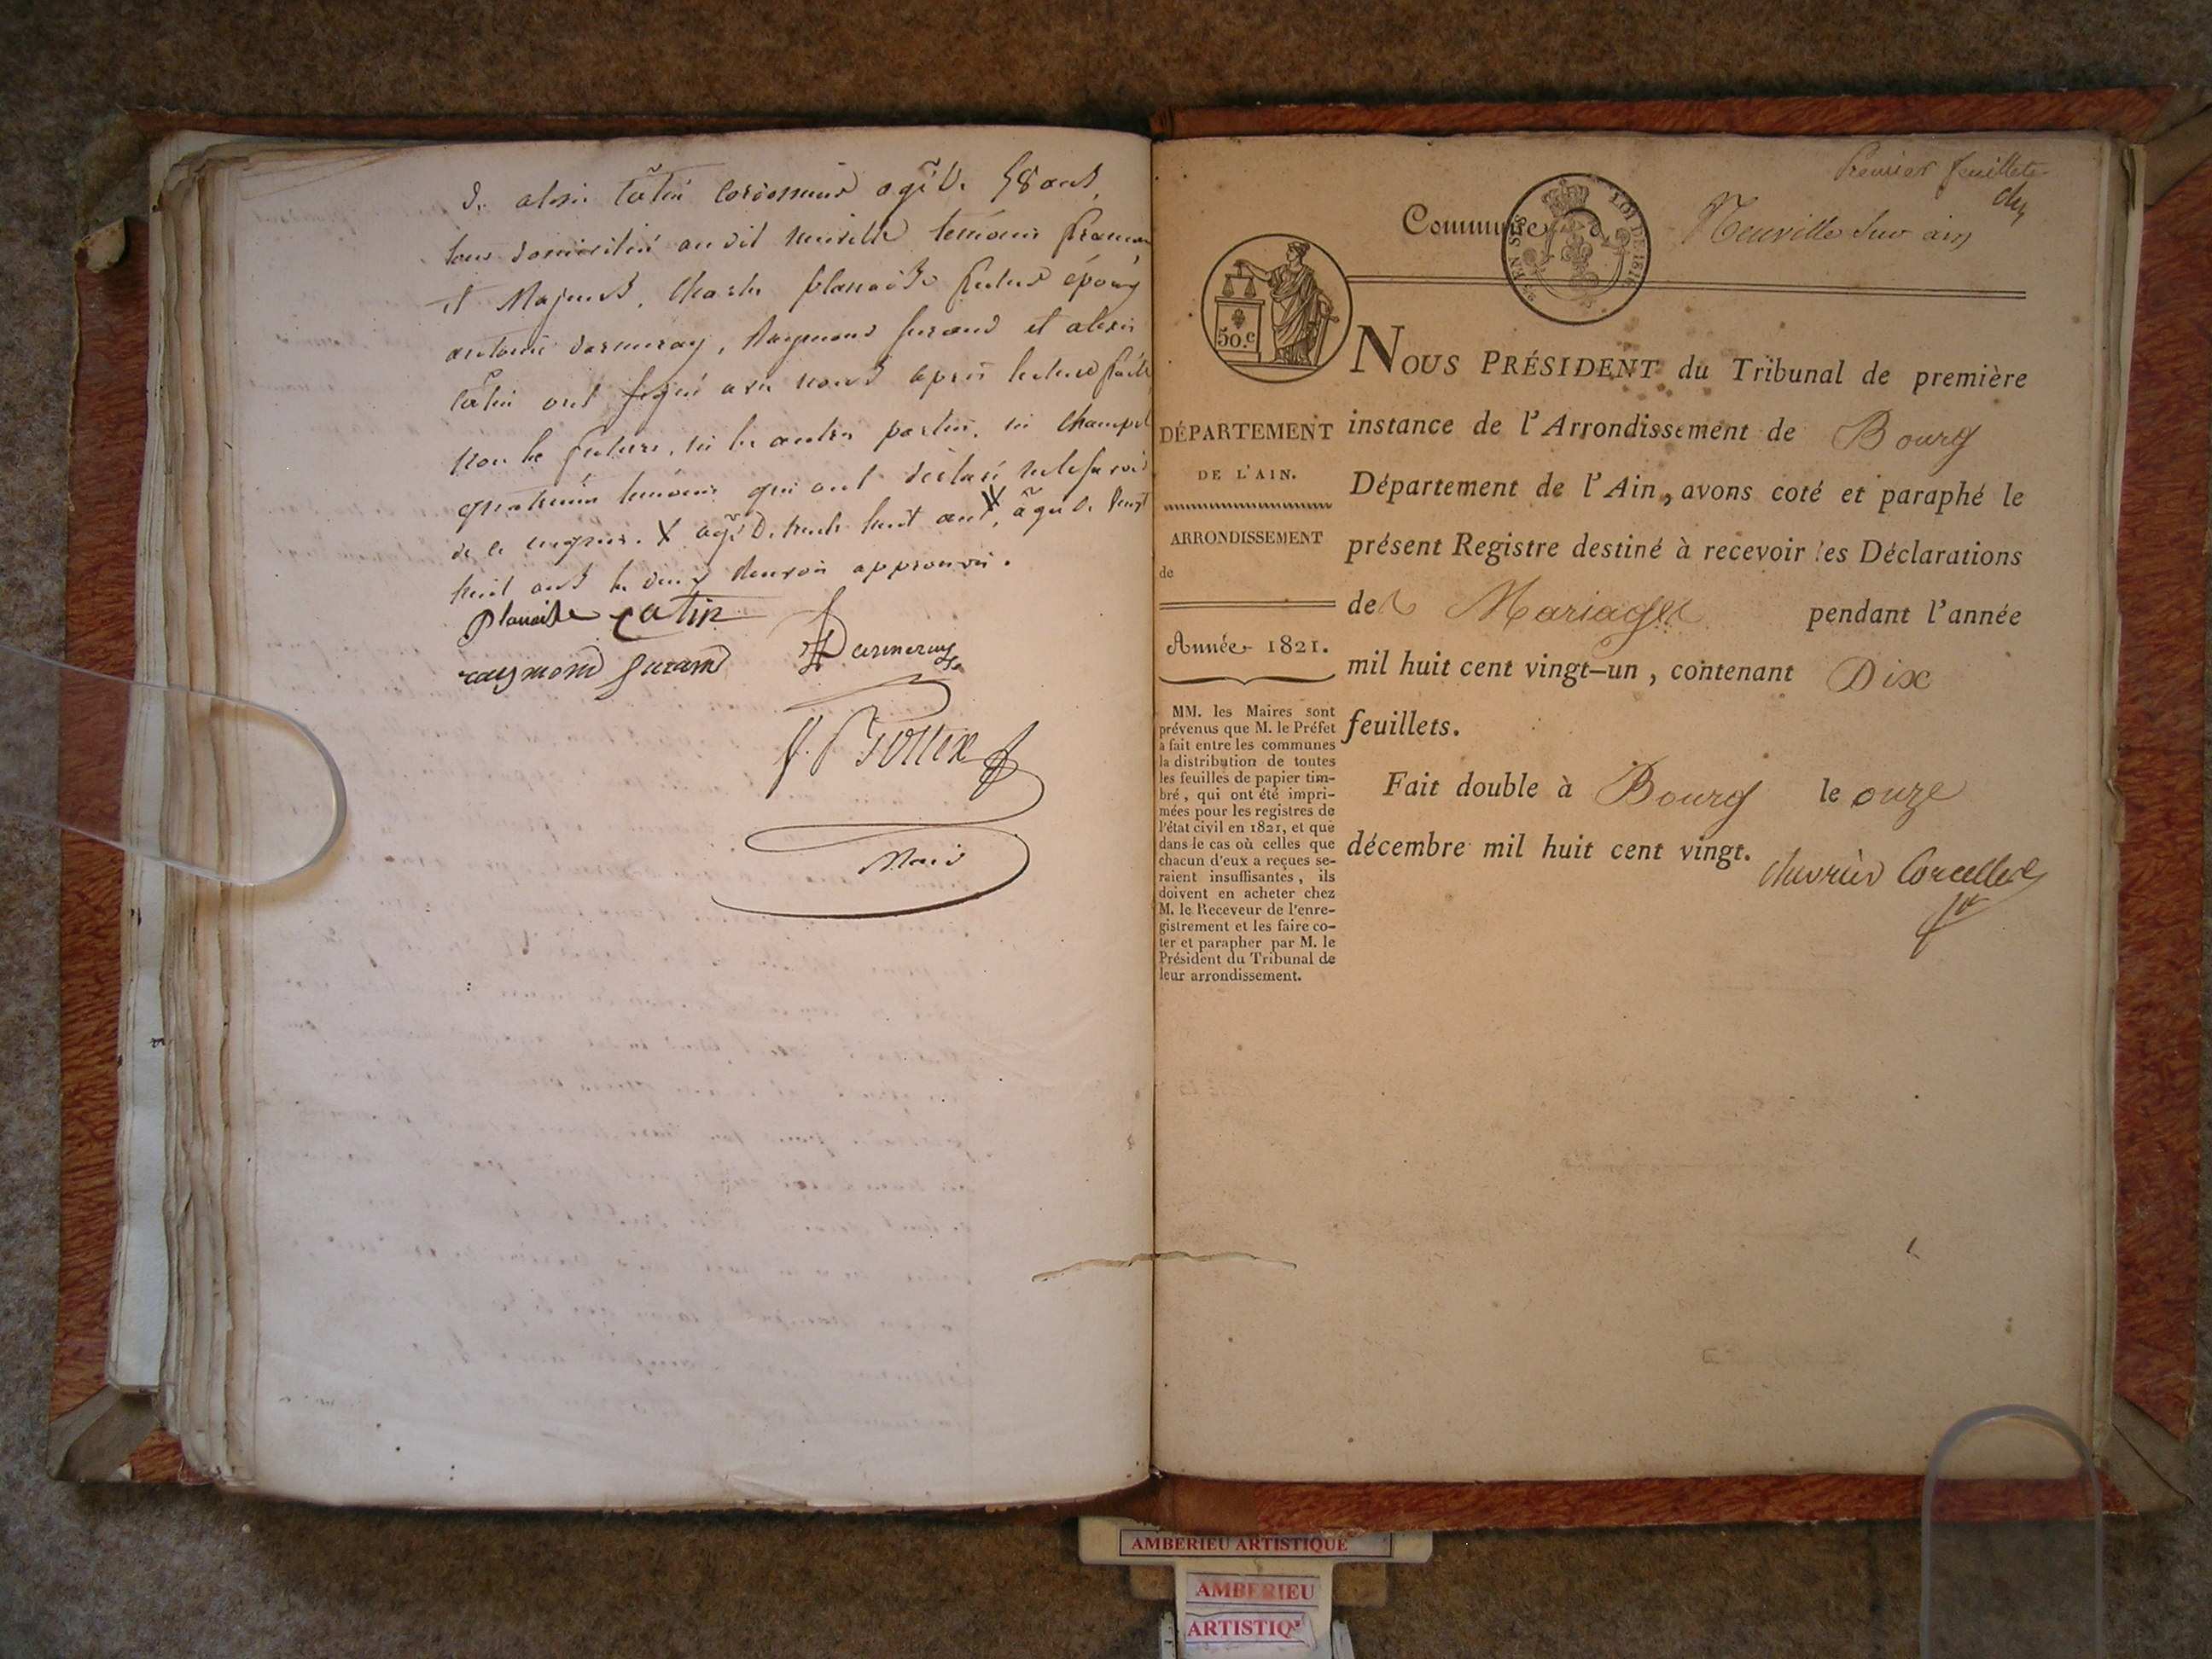 De alexis Câtin cordonnier agé De 58 ans,
tous domiciliés au dit neuville temoins francais
et Majeurs, Charles planaise futur époux
antoine darmeray, Raymond furand et alexis
Câtin ont signé avec nous après lecture faite
non la future, ni les autres parties, ni
quatrieme temoins qui ont déclaré ne le savoir
de ce enquis. X agé De trente huit ans, X âgé de vingt
huit ans les deux renvois approuvés.
planaise Catin
raymond furand Darmeray
Maire
Premier feuillet
Commune de Neuville sur ain
EN SUS LOI DE 1816
50.c
NOUS PRÉSIDENT du Tribunal de première
instance de l'Arrondissement de Bourg
Département de l'Ain, avons coté et paraphé le
présent Registre destiné à recevoir les Déclarations
des Mariages pendant l'année
mil huit cent vingt-un, contenant Dix
feuillets.
Fait double à Bourg le onze
décembre mil huit cent vingt.
Chevrier Corcelles
DÉPARTEMENT
DE L'AIN.
ARRONDISSEMENT
de
Année 1821.
MM. les Maires sont
prévenus que M. le Préfet
a fait entre les communes
la distribution de toutes
les feuilles de papier tim-
bré, qui ont été impri-
mées pour les registres de
l'état civil en 1821, et que
dans le cas où celles que
chacun d'eux a reçues se-
raient insuffisantes, ils
doivent en acheter chez
M. le Receveur de l'enre-
gistrement et les faire co-
ter et parapher par M. le
Président du Tribunal de
leur arrondissement.
AMBERIEU ARTISTIQUE
AMBERIEU
ARTISTIQ